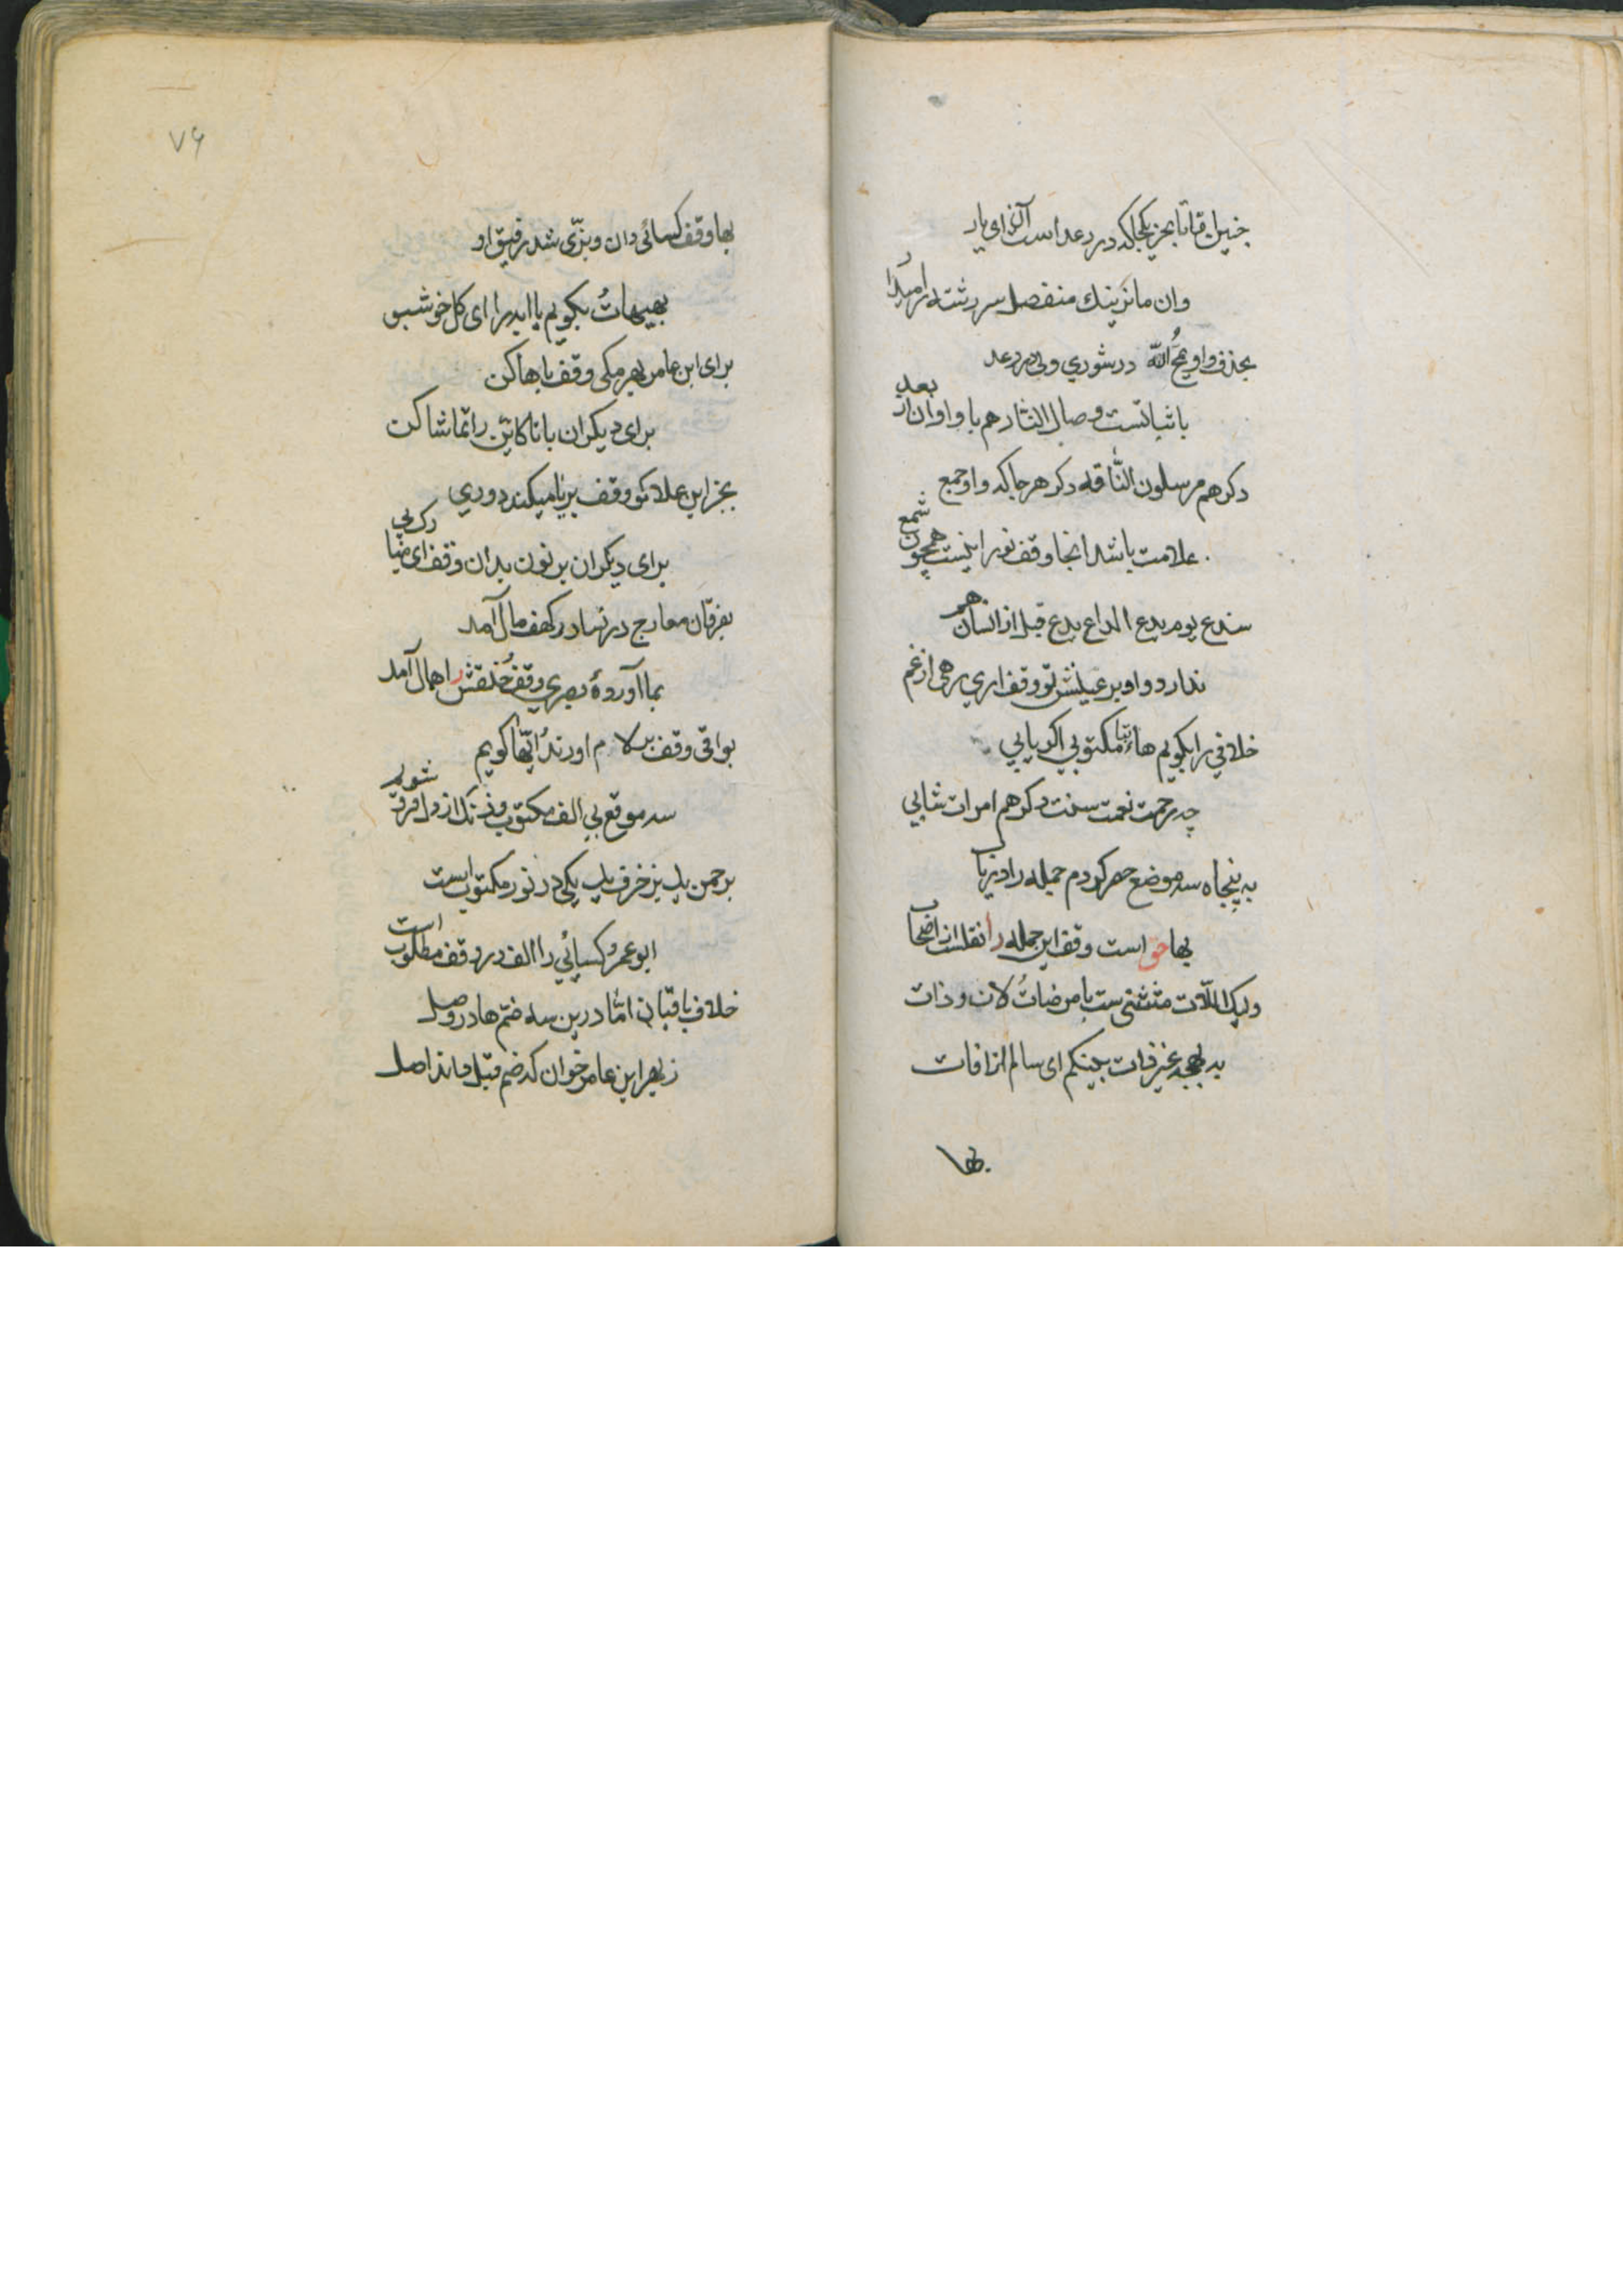 بجز یکجا که در رعد است آنرا ای یار
وان ما نرینك منفصل سر رشته را مگذار
بحذف واو یمحُ الله در شوری ولی در رعد
باثباتست وصال النار هم با واو ان از بعد
دکر هم مرسلون النّاقه دکر هر جا که واو جمع
علامت باشد انجا وقف نور اینست همچون شمع
سندع یوم یدع الداع یدع قبل از انسان هم
ندارد واو بر عینش تو وقف اری رهی از غم
خلافی را بکویم هاء تا مکتوبی اکر یابی
چه رحمت نعمت سنت دکر هم امرات شابی
به پنجاه سه موضع حصر کردم جمله را دریاب
بها حق است وقف این جمله را نقلست از اصحاب
ولیک اللّات مثتثنی ست با مرضاتُ لات و ذات
به بهجه غیر ذات بینکم ای سالم از افات
بها
۷۶
بها وقف کسائی دان و بزّی شد رفیق او
بهیهاتُ بکویم با ابدرا ای کل خوشبو
برای ابن عامر بهر مکی وقف با ها کن
برای دیکران با تا کاین را تماشا کن
بجز ابن علا کو وقف بر یا میکند دوری
برای دیکران بر نون بدان وقف ای ضیا
بفرقان معارج در نسا در کهف مال آمد
بما آورده بصری وقف خلقش را همال آمد
بواقی وقف بر لام اورند ایّها کویم
سه موقع بی الف مکتوب
برحمن یك بزخرف یك یکی در نور مکتوب است
ابو عمرو کسائی را الف در وقف مطلوب است
خلاف باقیان امّا درین سه ضم ها در وصل
ز بهر ابن عامر خوان که ضم قبل ماند اصل